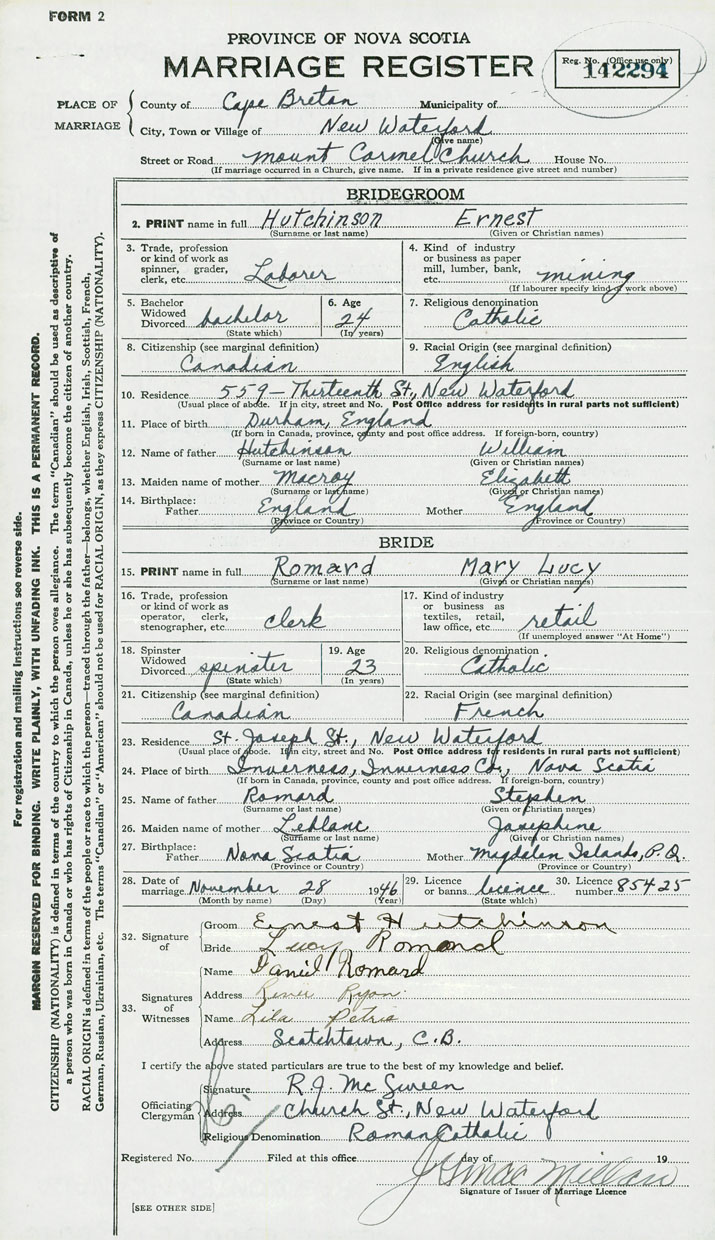 FORM 2
PROVINCE OF NOVA SCOTIA
MARRIAGE REGISTER
Reg. No. (Office use only)
142294
PLACE OF MARRIAGE
County of Cape Breton Municipality of
City, Town or Village of New Waterford
(Give name)
Street or Road Mount Carmel Church House No.
(If marriage occurred in a Church, give name. If in a private residence give street and number)
BRIDEGROOM
2. PRINT name in full Hutchinson Ernest
(Surname or last name) (Given or Christian names)
3. Trade, profession or kind of work as spinner, grader, clerk, etc. Laborer
4. Kind of industry or business as paper mill, lumber, bank, etc. mining
(If labourer specify kind of work above)
5. Bachelor Widowed Divorced bachelor
(State which)
6. Age 24
(In years)
7. Religious denomination
Catholic
8. Citizenship (see marginal definition)
Canadian
9. Racial Origin (see marginal definition)
English
10. Residence 559 - Thirteenth St., New Waterford
(Usual place of abode. If in city, street and No. Post Office address for residents in rural parts not sufficient)
11. Place of birth Durham, England
(If born in Canada, province, county and post office address. If foreign-born, country)
12. Name of father Hutchinson William
(Surname or last name) (Given or Christian names)
13. Maiden name of mother Macroy Elizabeth
(Surname or last name) (Given or Christian names)
14. Birthplace: Father England Mother England
(Province or Country) (Province or Country)
BRIDE
15. PRINT name in full Romard Mary Lucy
(Surname or last name) (Given or Christian names)
16. Trade, profession or kind of work as operator, clerk, stenographer, etc. clerk
17. Kind of industry or business as textiles, retail, law office, etc. retail
(If unemployed answer "At Home")
18. Spinster Widowed Divorced spinster
(State which)
19. Age 23
(In years)
20. Religious denomination
Catholic
21. Citizenship (see marginal definition)
Canadian
22. Racial Origin (see marginal definition)
French
23. Residence St. Joseph St., New Waterford
(Usual place of abode. If in city, street and No. Post Office address for residents in rural parts not sufficient)
24. Place of birth Inverness, Inverness Co., Nova Scotia
(If born in Canada, province, county and post office address. If foreign-born, country)
25. Name of father Romard Stephen
(Surname or last name) (Given or Christian names)
26. Maiden name of mother Leblanc Josephine
(Surname or last name) (Given or Christian names)
27. Birthplace: Father Nova Scotia Mother Magdalen Islands, P.Q.
(Province or Country) (Province or Country)
28. Date of marriage November 28 1946
(Month by name) (Day) (Year)
29. Licence or banns licence
(State which)
30. Licence number 85425
32. Signature of
Groom Ernest Hutchinson
Bride Lucy Romard
33. Signatures of Witnesses
Name Daniel Romard
Address Renee Ryan
Name Lila Petrie
Address Scotchtown, C.B.
I certify the above stated particulars are true to the best of my knowledge and belief.
Officiating Clergyman
Signature R.J. McSween
Address Church St., New Waterford
Religious Denomination Roman Catholic
Registered No. Filed at this office day of 19
Signature of Issuer of Marriage Licence
[SEE OTHER SIDE]
For registration and mailing instructions see reverse side.
MARGIN RESERVED FOR BINDING. WRITE PLAINLY, WITH UNFADING INK. THIS IS A PERMANENT RECORD.
CITIZENSHIP (NATIONALITY) is defined in terms of the country to which the person owes allegiance. The term "Canadian" should be used as descriptive of
a person who was born in Canada or who has rights of Citizenship in Canada, unless he or she has subsequently become the citizen of another country.
RACIAL ORIGIN is defined in terms of the people or race to which the person—traced through the father—belongs, whether English, Irish, Scottish, French,
German, Russian, Ukrainian, etc. The terms "Canadian" or "American" should not be used for RACIAL ORIGIN, as they express CITIZENSHIP (NATIONALITY).